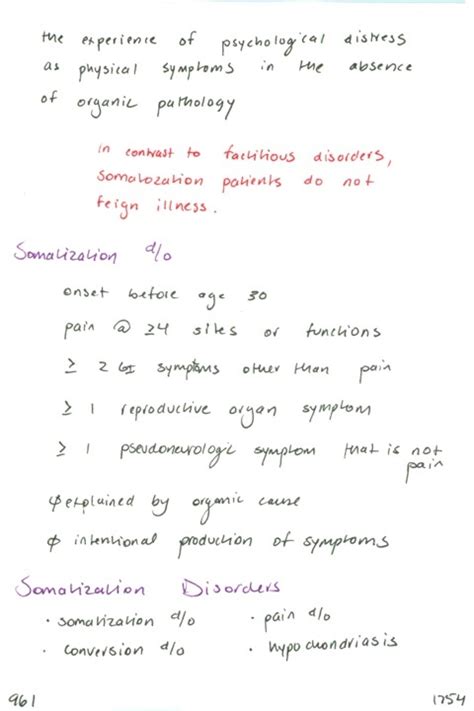 the experience of psychological distress
as physical symptoms in the absence
of organic pathology
in contrast to factitious disorders,
somatozation patients do not
feign illness.
Somatization d/o
onset before age 30
pain @ ≥4 sites or functions
≥ 2 GI symptoms other than pain
≥ 1 reproductive organ symptom
≥ 1 pseudoneurologic symptom that is not
pain
φ explained by organic cause
φ intentional production of symptoms
Somatization Disorders
· somatization d/o · pain d/o
· conversion d/o · hypochondriasis
961 1754